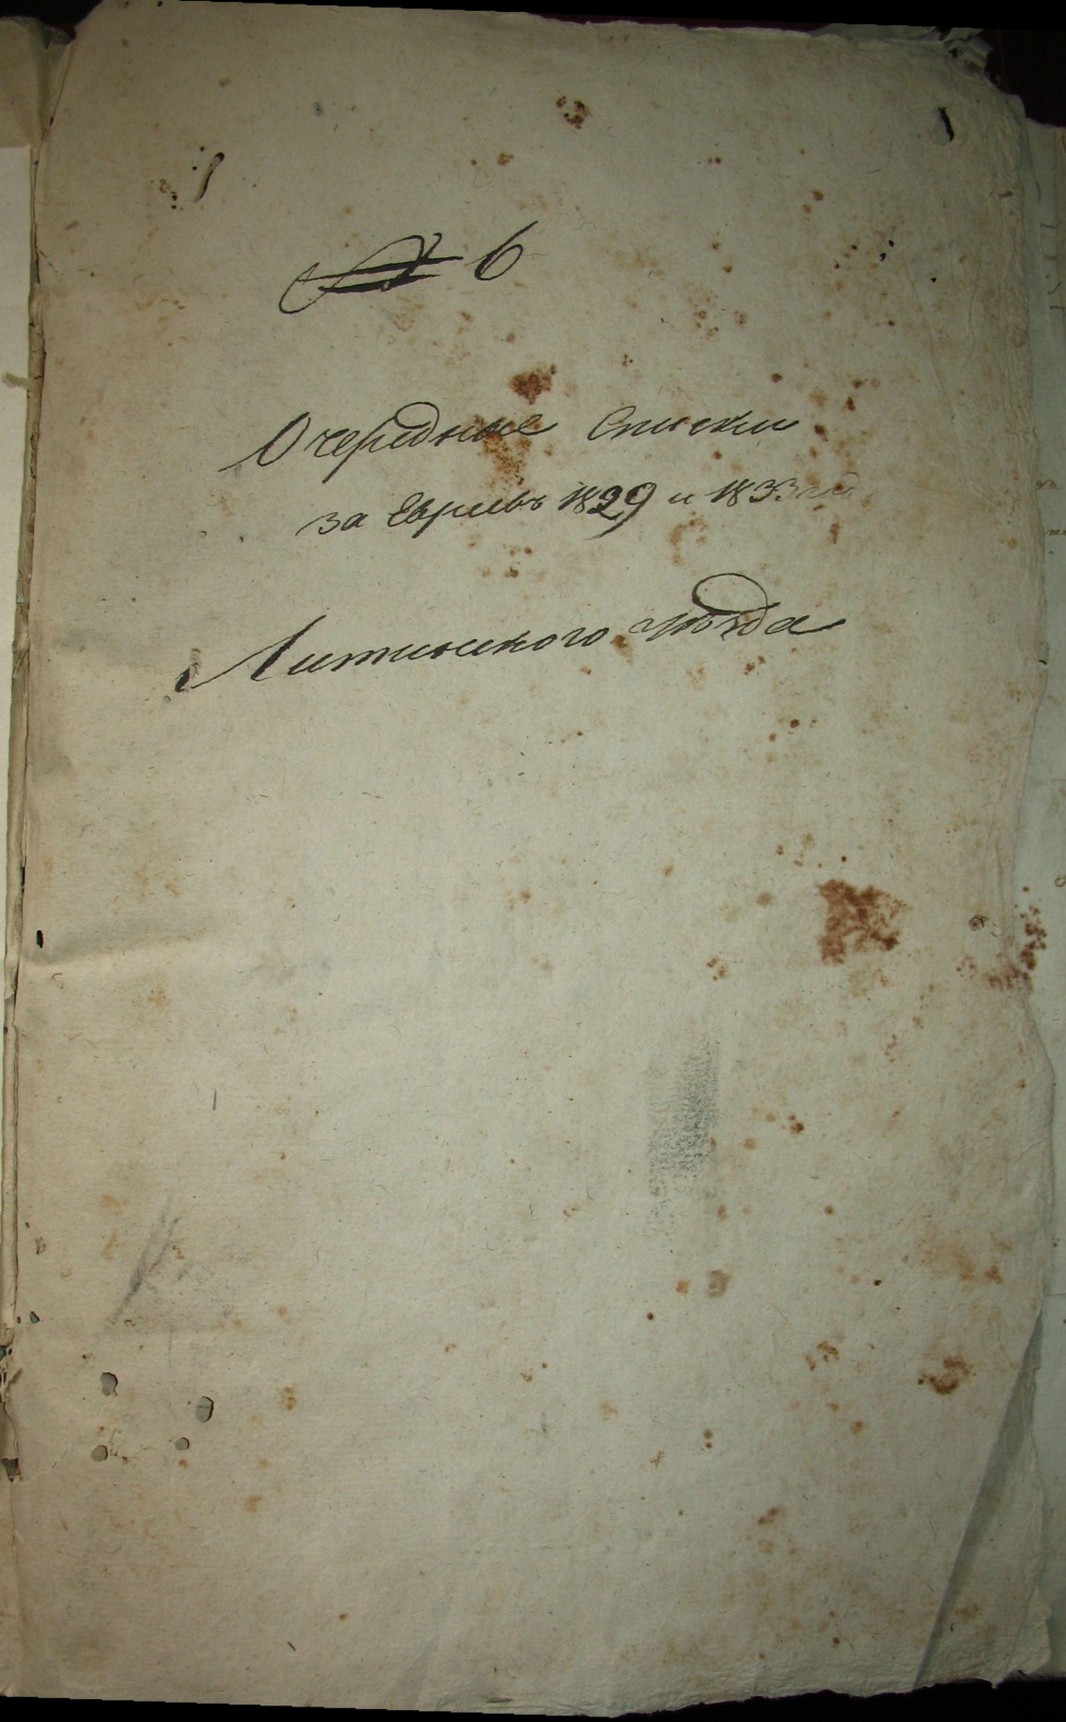 № 6
Очередные Списки
за Евреевъ 1829 и 1833 год
Литинского уѣзда